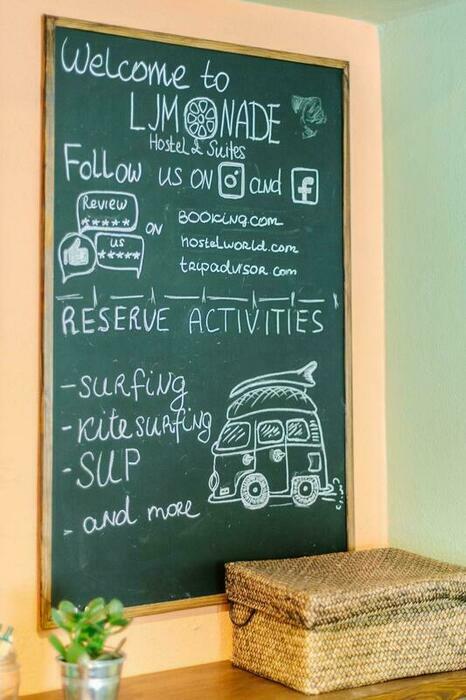 Welcome to
LJMONADE
Hostel & Suites
Follow us on and f
Review
*****
us
*****
ON
BOOKING.COM
hostelworld.com
tripadvisor com
RESERVE ACTIVITIES
-SURFING
-Kitesurfing
-SUP
- and more